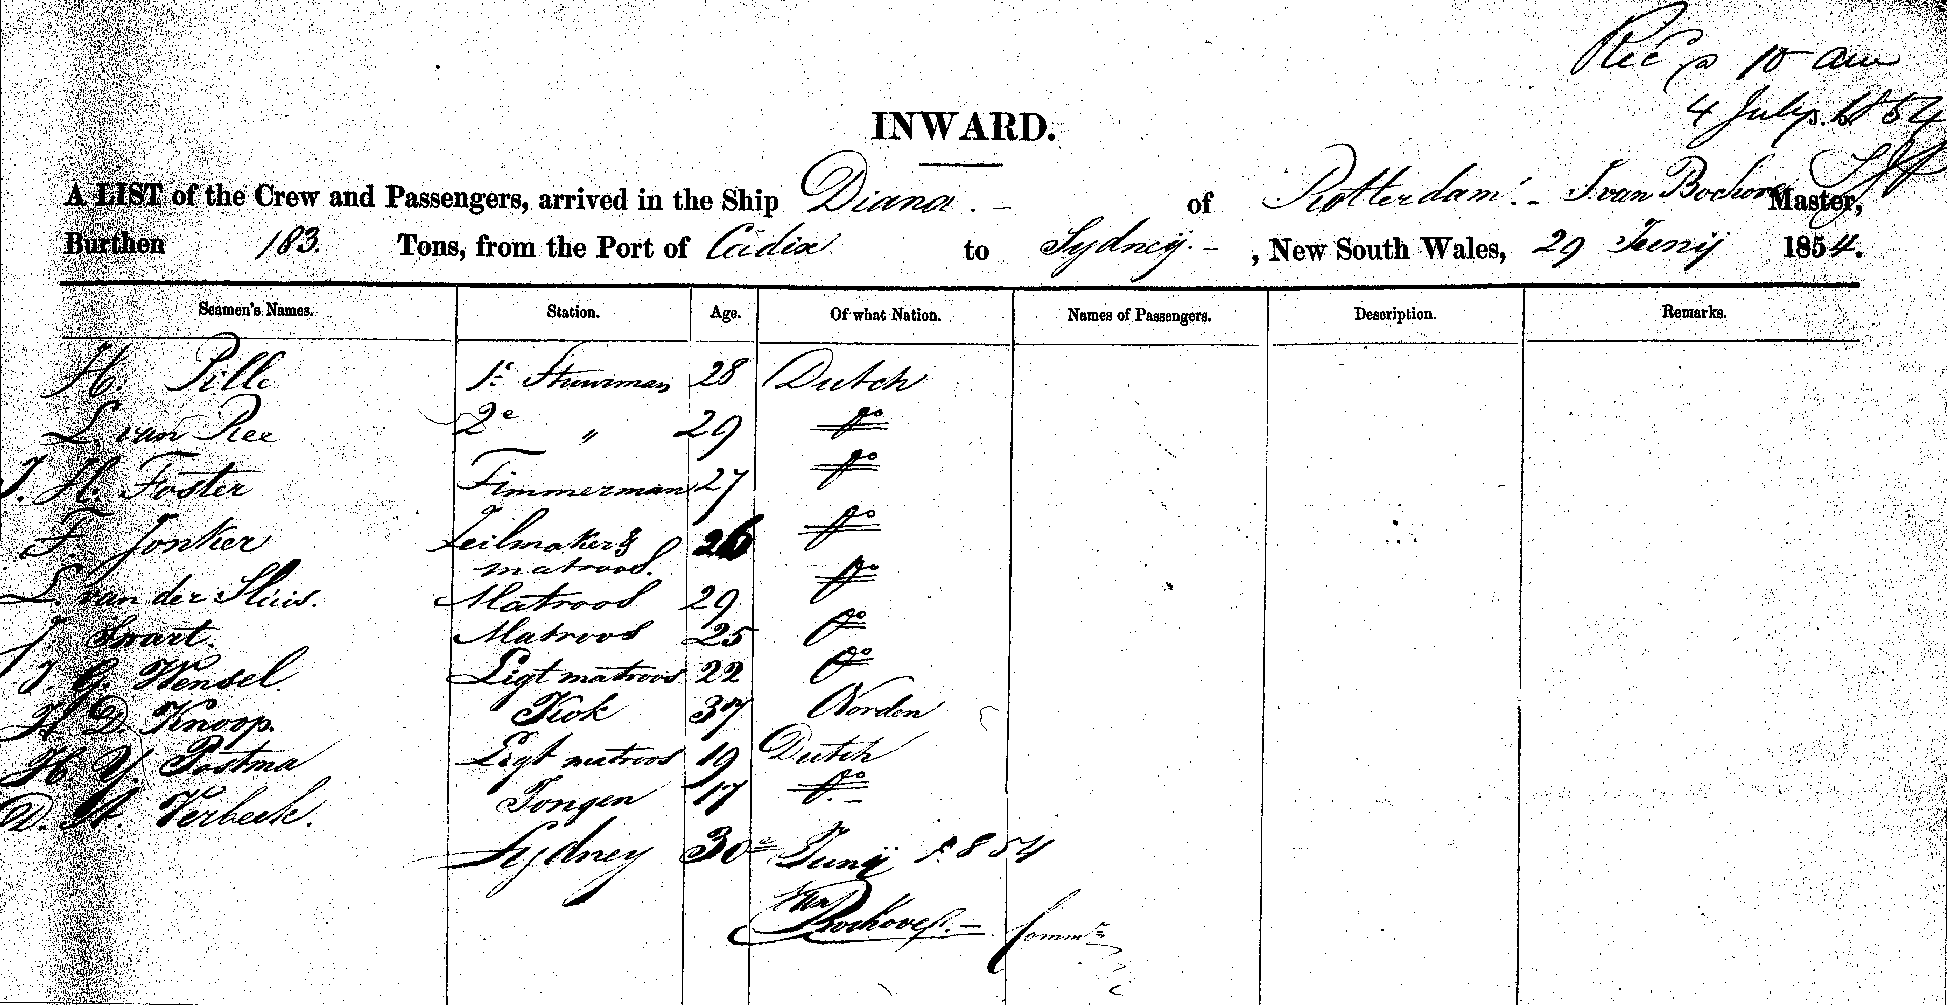 Rec 10 am
4 July. 1854
INWARD.
A LIST of the Crew and Passengers, arrived in the Ship Diana. - of Rotterdam. - J van Bochove Master,
Burthen 183. Tons, from the Port of Cadix to Sydney. - , New South Wales, 29 Junij 1854.
Seamen's Names. Station. Age. Of what Nation. Names of Passengers. Description. Remarks.
H. Pille 1e Stuurman 28 Dutch
L. van Ree 2e " 29 do
J. H. Foster Timmerman 27 do
F. Jonker Zeilmaker & 26 do
matroos.
L. van der Sluis. Matroos 29 do
J. Swart. Matroos 25 do
J. G. Wensel. Ligt matroos 22 do
H. D. Knoop. Kok 37 Norden
H. Y. Postma Ligt matroos 19 Dutch
D. H. Verbeek. Jongen 17 do. -
Sydney 30e Junij 1854
JVan
Bochove. -